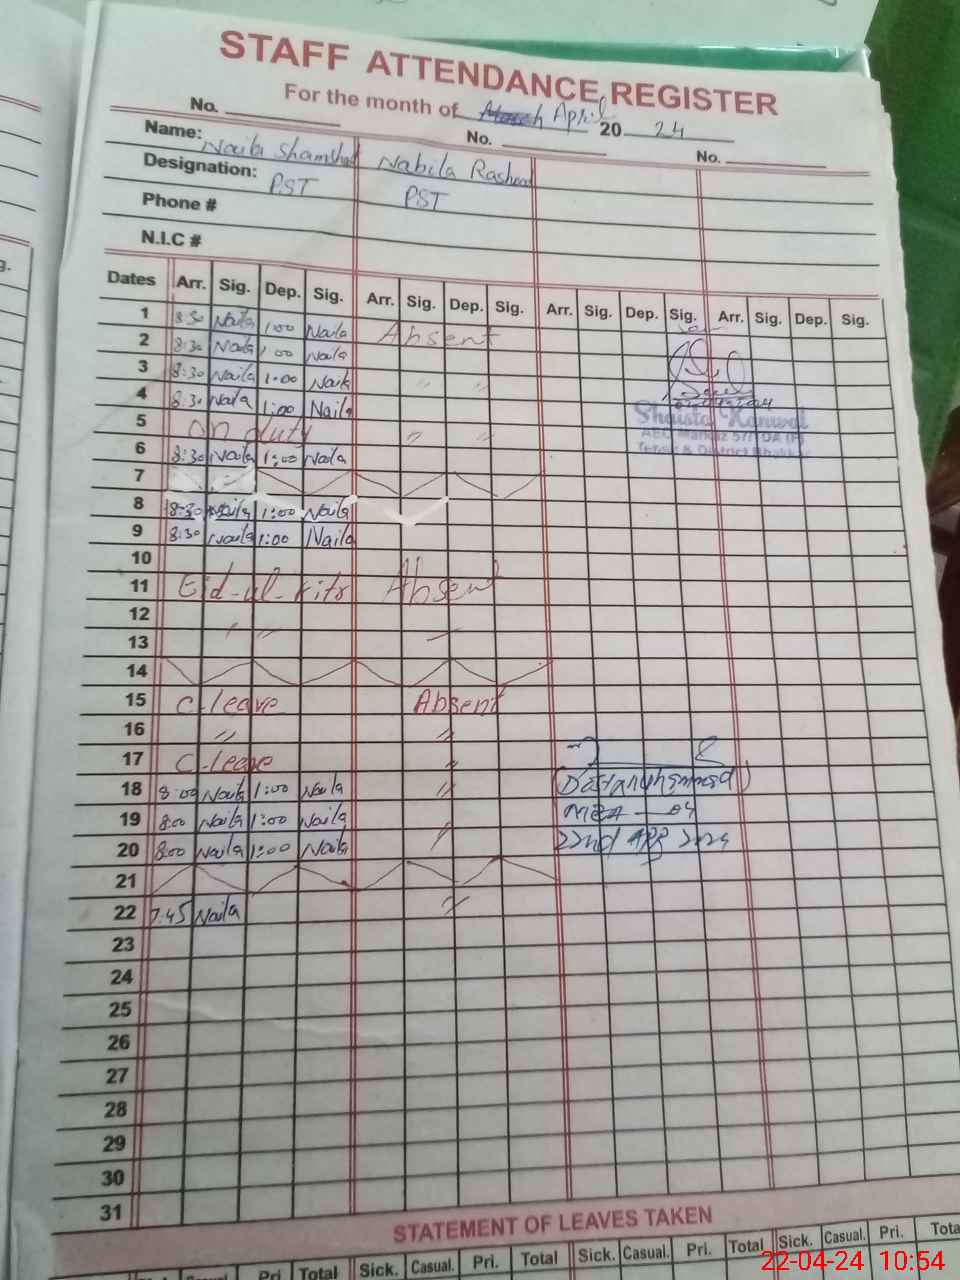 STAFF ATTENDANCE REGISTER
For the month of March April 20 24
No. No. No.
Name: Naila Nabila
Designation: PST PST
Phone #
N.I.C #
Dates Arr. Sig. Dep. Sig. Arr. Sig. Dep. Sig. Arr. Sig. Dep. Sig. Arr. Sig. Dep. Sig.
1 8:30 Naila 1:00 Naila Absent
2 8:30 Naila 1:00 Naila
3 8:30 Naila 1:00 Naila " "
4 8:30 Naila 1:00 Naila
Shaista Kanwal
5 on duty " "
6 8:30 Naila 1:00 Naila
7
8 8:30 Naila 1:00 Naila
9 8:30 Naila 1:00 Naila
10
11 Eid-ul-Fitr Absent
12
13 " "
14
15 C.leave Absent
16 " "
17 C.leave "
18 8:00 Naila 1:00 Naila "
19 8:00 Naila 1:00 Naila
MEA - 04
20 8:00 Naila 1:00 Naila "
22nd APR 2024
21
22 7:45 Naila "
23
24
25
26
27
28
29
30
31
STATEMENT OF LEAVES TAKEN
Pri. Total Sick. Casual. Pri. Total Sick. Casual. Pri. Total Sick. Casual. Pri.
22-04-24 10:54